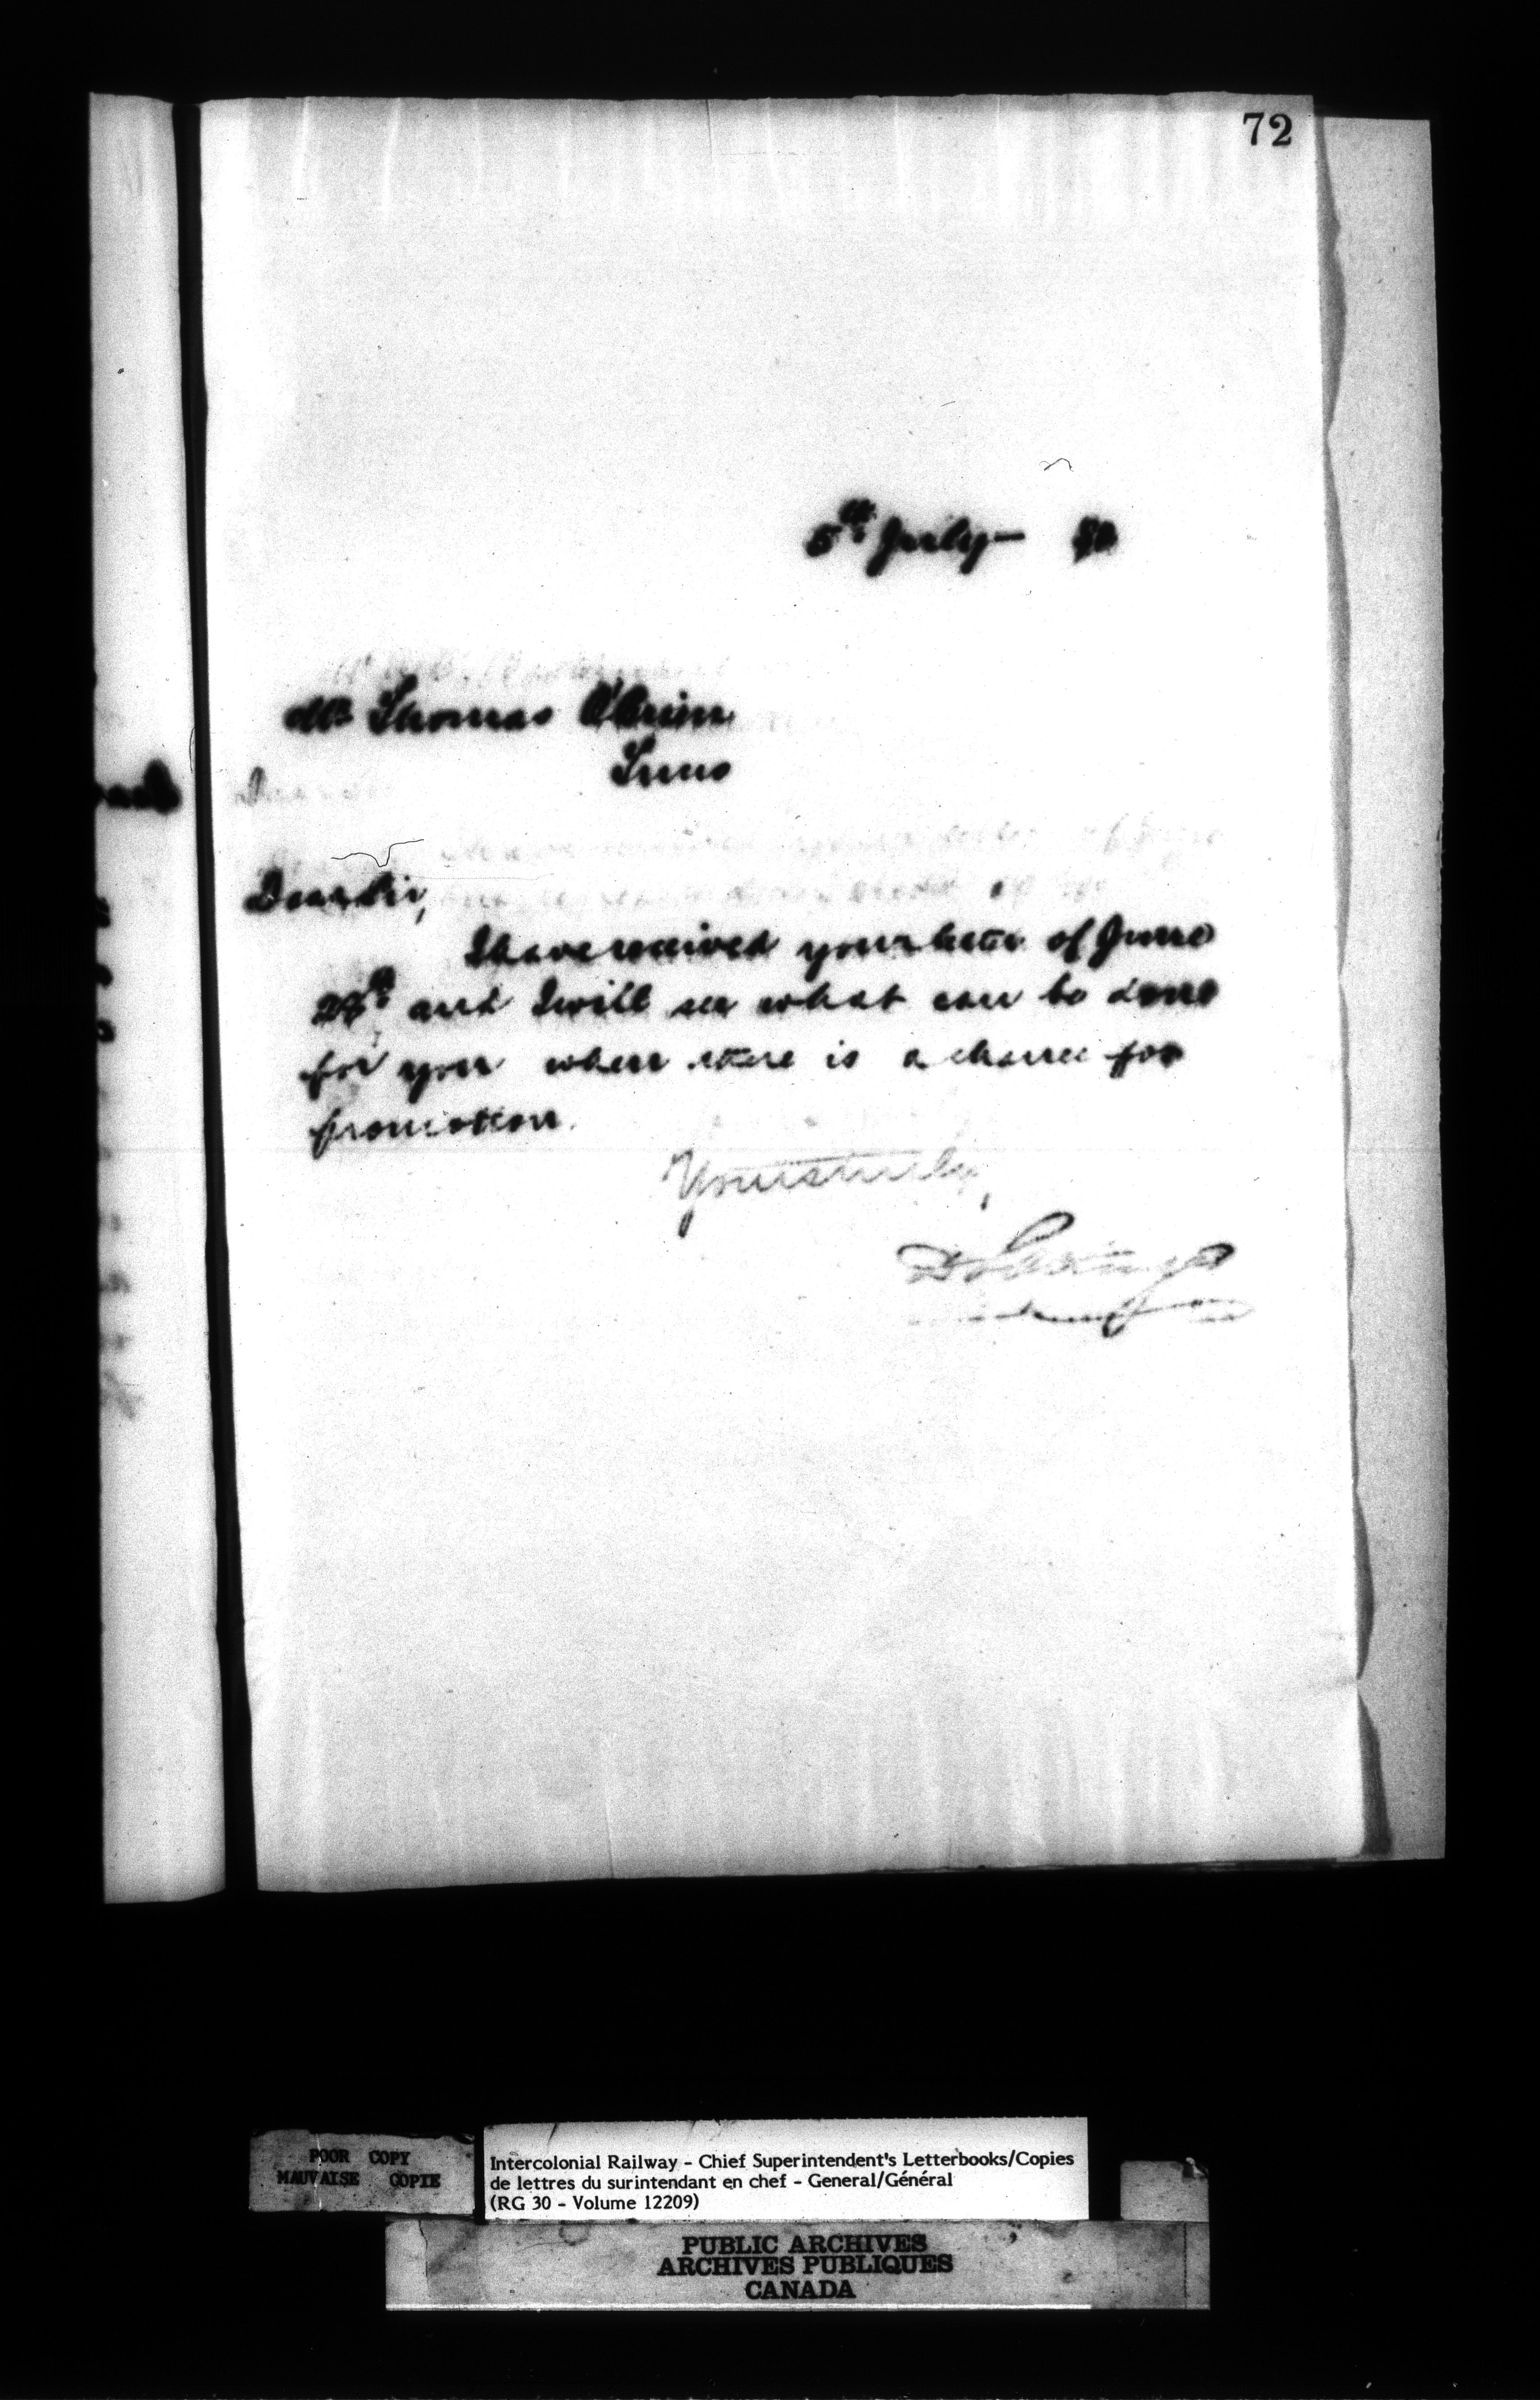 72
5th July — 80
Mr Thomas O'Brien
Truro
Dear Sir,
I have received your letter of June
28th and I will see what can be done
for you when there is a chance for
promotion.
Yours truly,
D Pottinger
POOR COPY
MAUVAISE COPIE
Intercolonial Railway - Chief Superintendent's Letterbooks/Copies
de lettres du surintendant en chef - General/Général
(RG 30 - Volume 12209)
PUBLIC ARCHIVES
ARCHIVES PUBLIQUES
CANADA